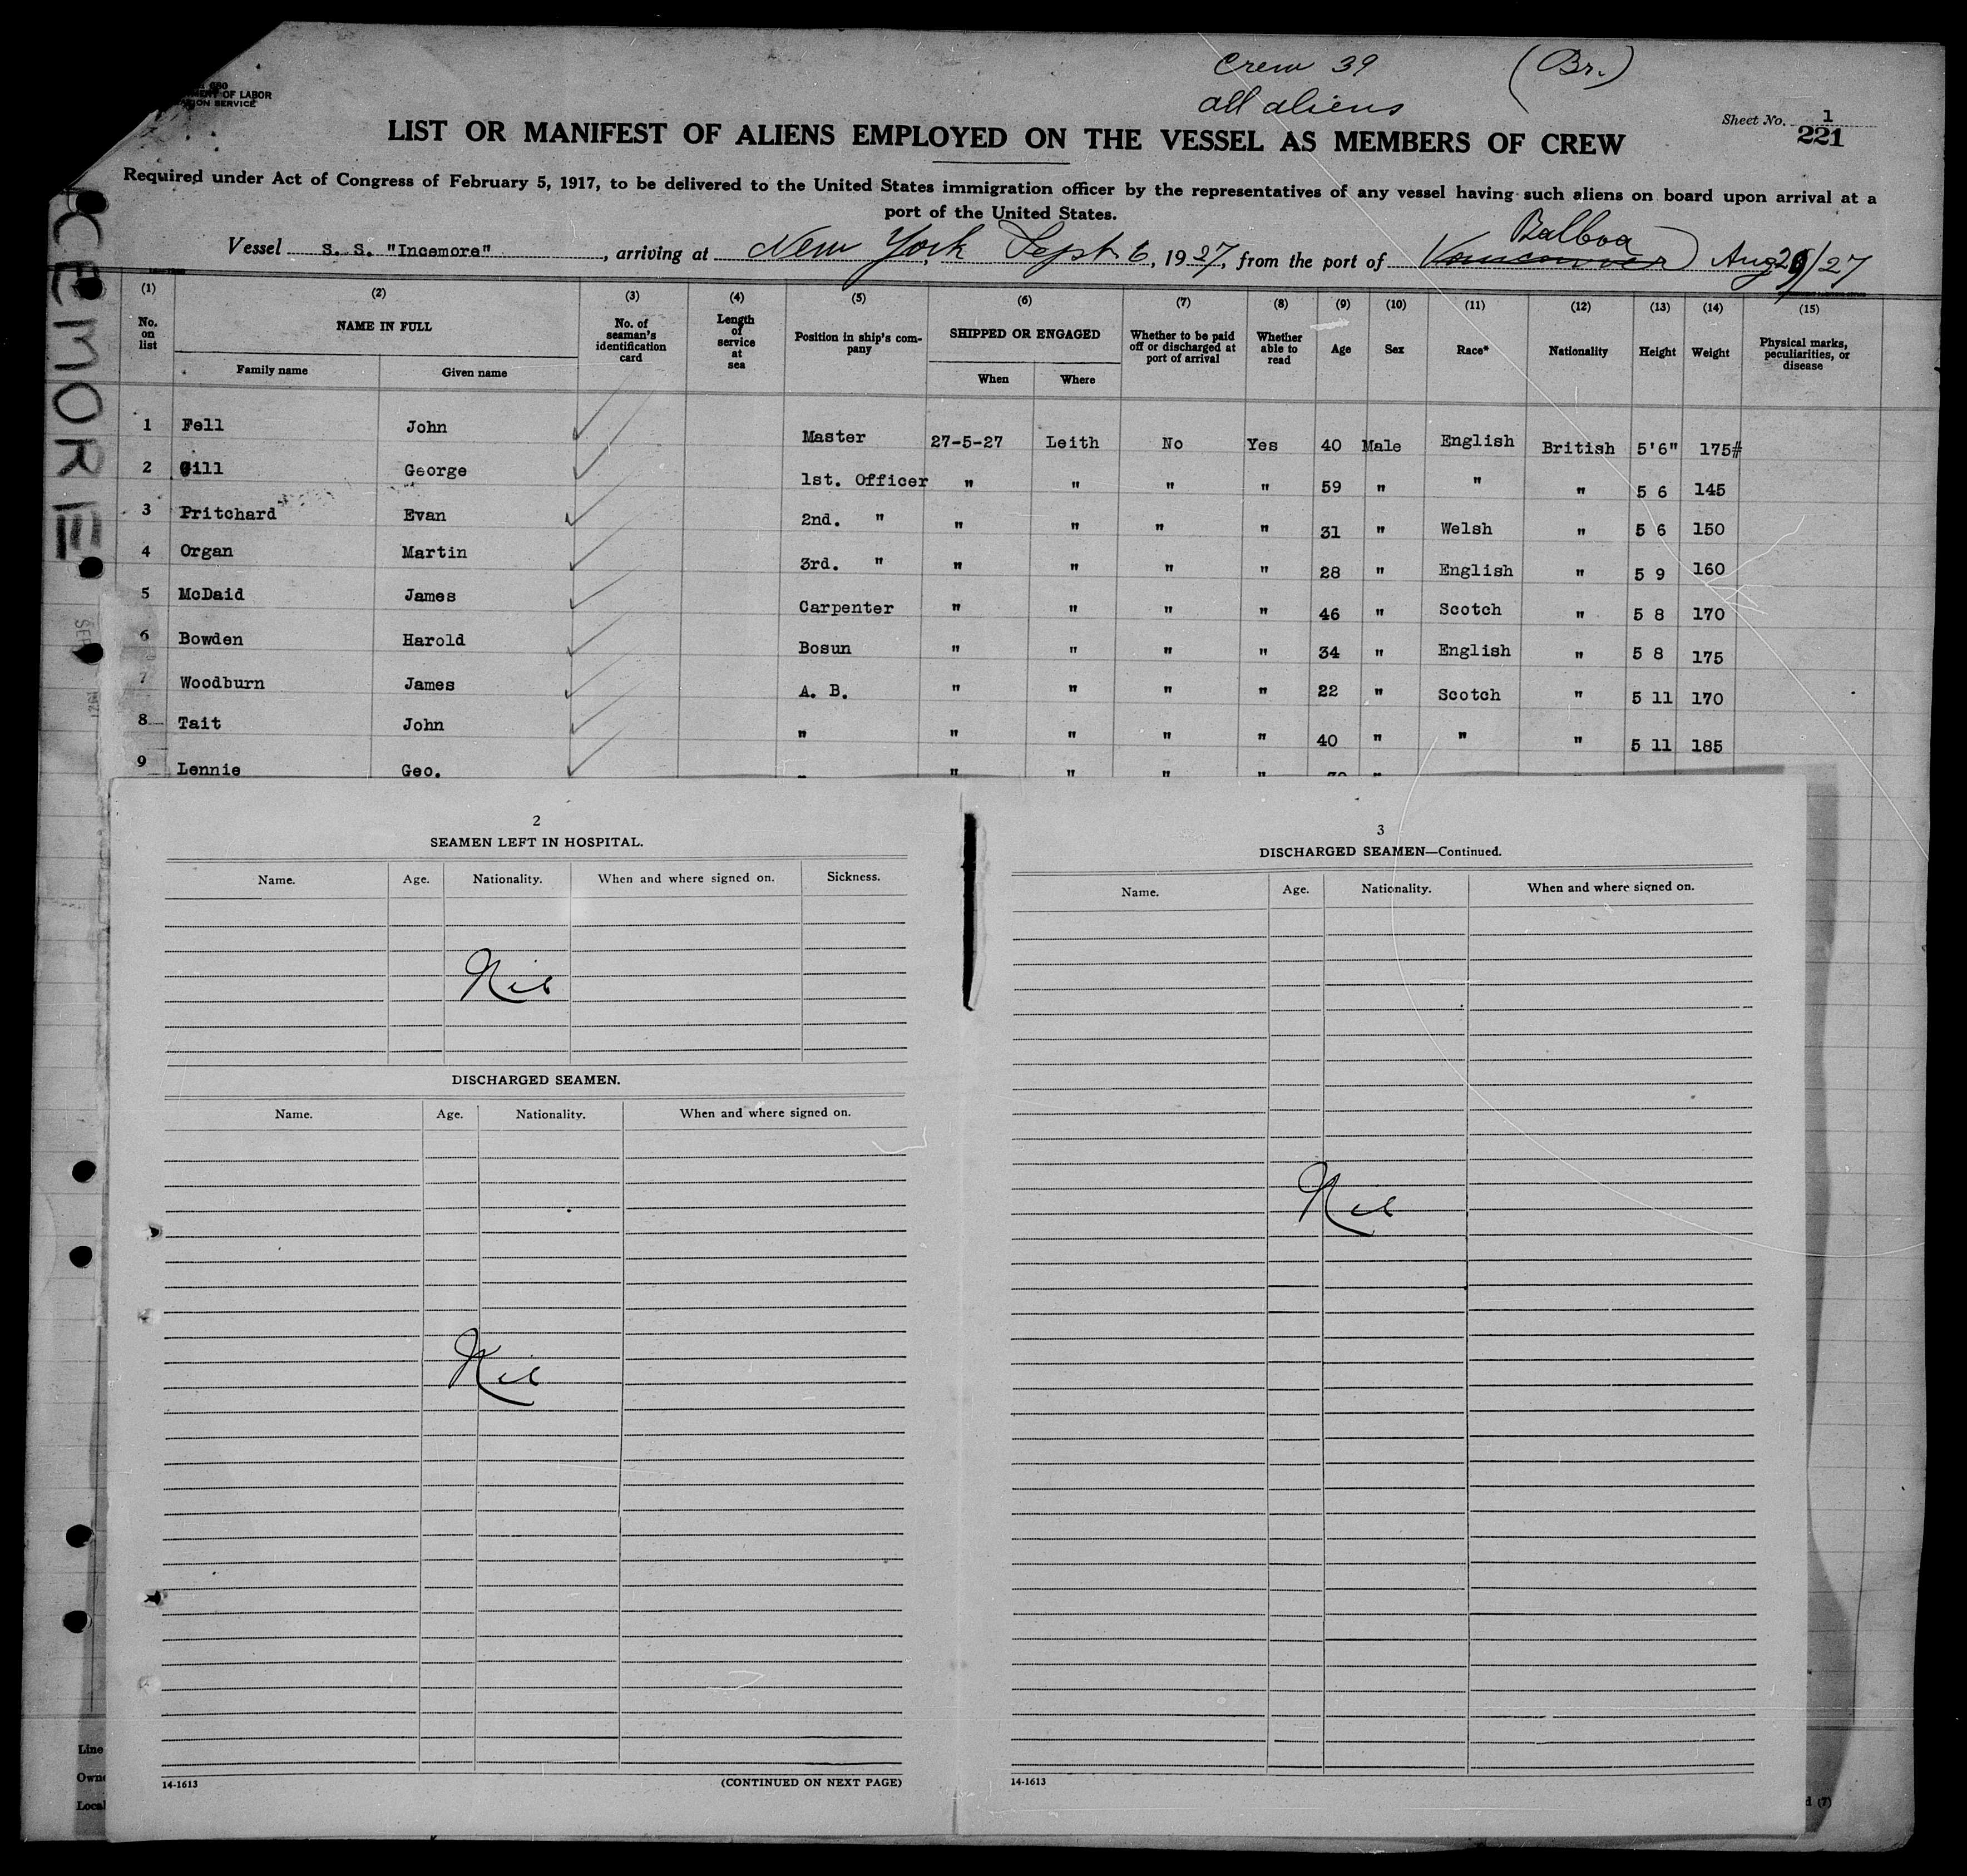 Crew 39 (Br.)
all aliens
680
MENT OF LABOR
ATION SERVICE
Sheet No. 1
221
LIST OR MANIFEST OF ALIENS EMPLOYED ON THE VESSEL AS MEMBERS OF CREW
Required under Act of Congress of February 5, 1917, to be delivered to the United States immigration officer by the representatives of any vessel having such aliens on board upon arrival at a
port of the United States.
Balboa
Vessel S. S. "Incemore", arriving at New York, Sept. 6, 1927, from the port of Vancouver Aug 29/27
CEMORE
(1) (2) (3) (4) (5) (6) (7) (8) (9) (10) (11) (12) (13) (14) (15)
No. on list NAME IN FULL No. of seaman's identification card Length of service at sea Position in ship's company SHIPPED OR ENGAGED Whether to be paid off or discharged at port of arrival Whether able to read Age Sex Race* Nationality Height Weight Physical marks, peculiarities, or disease
Family name Given name When Where
1 Fell John Master 27-5-27 Leith No Yes 40 Male English British 5'6" 175#
2 Gill George 1st. Officer " " " " 59 " " " 5 6 145
3 Pritchard Evan 2nd. " " " " " 31 " Welsh " 5 6 150
4 Organ Martin 3rd. " " " " " 28 " English " 5 9 160
5 McDaid James Carpenter " " " " 46 " Scotch " 5 8 170
6 Bowden Harold Bosun " " " " 34 " English " 5 8 175
7 Woodburn James A. B. " " " " 22 " Scotch " 5 11 170
8 Tait John " " " " " 40 " " " 5 11 185
9 Lennie Geo. " " " " "
2
SEAMEN LEFT IN HOSPITAL.
Name. Age. Nationality. When and where signed on. Sickness.
Nil
DISCHARGED SEAMEN.
Name. Age. Nationality. When and where signed on.
Nil
14-1613 (CONTINUED ON NEXT PAGE)
3
DISCHARGED SEAMEN—Continued.
Name. Age. Nationality. When and where signed on.
Nil
14-1613
Line
Owne
Local
d (7)